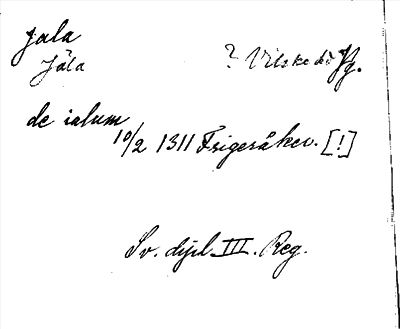 Jala
Jäla ? Vilske hd Vg.
de ialum
10/2 1311 Frigeråker. [!]
Sv. dipl III. Reg.